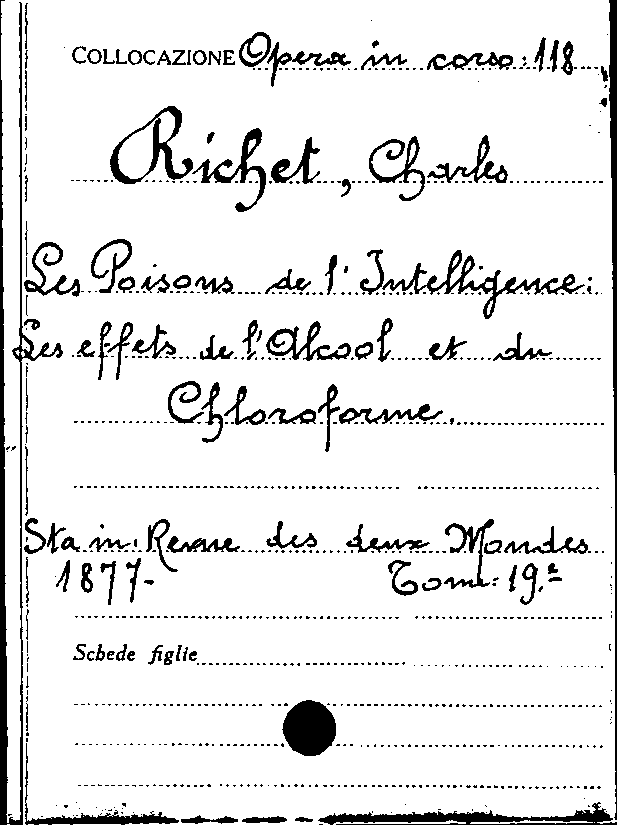 COLLOCAZIONE Opera in corso: 118
Richet, Charles
Les Poisons de l'Intelligence:
Les effets de l'Alcool et du
Chloroforme.
Sta in: Revue des deux Mondes
1877- Tom: 19.e
Schede figlie